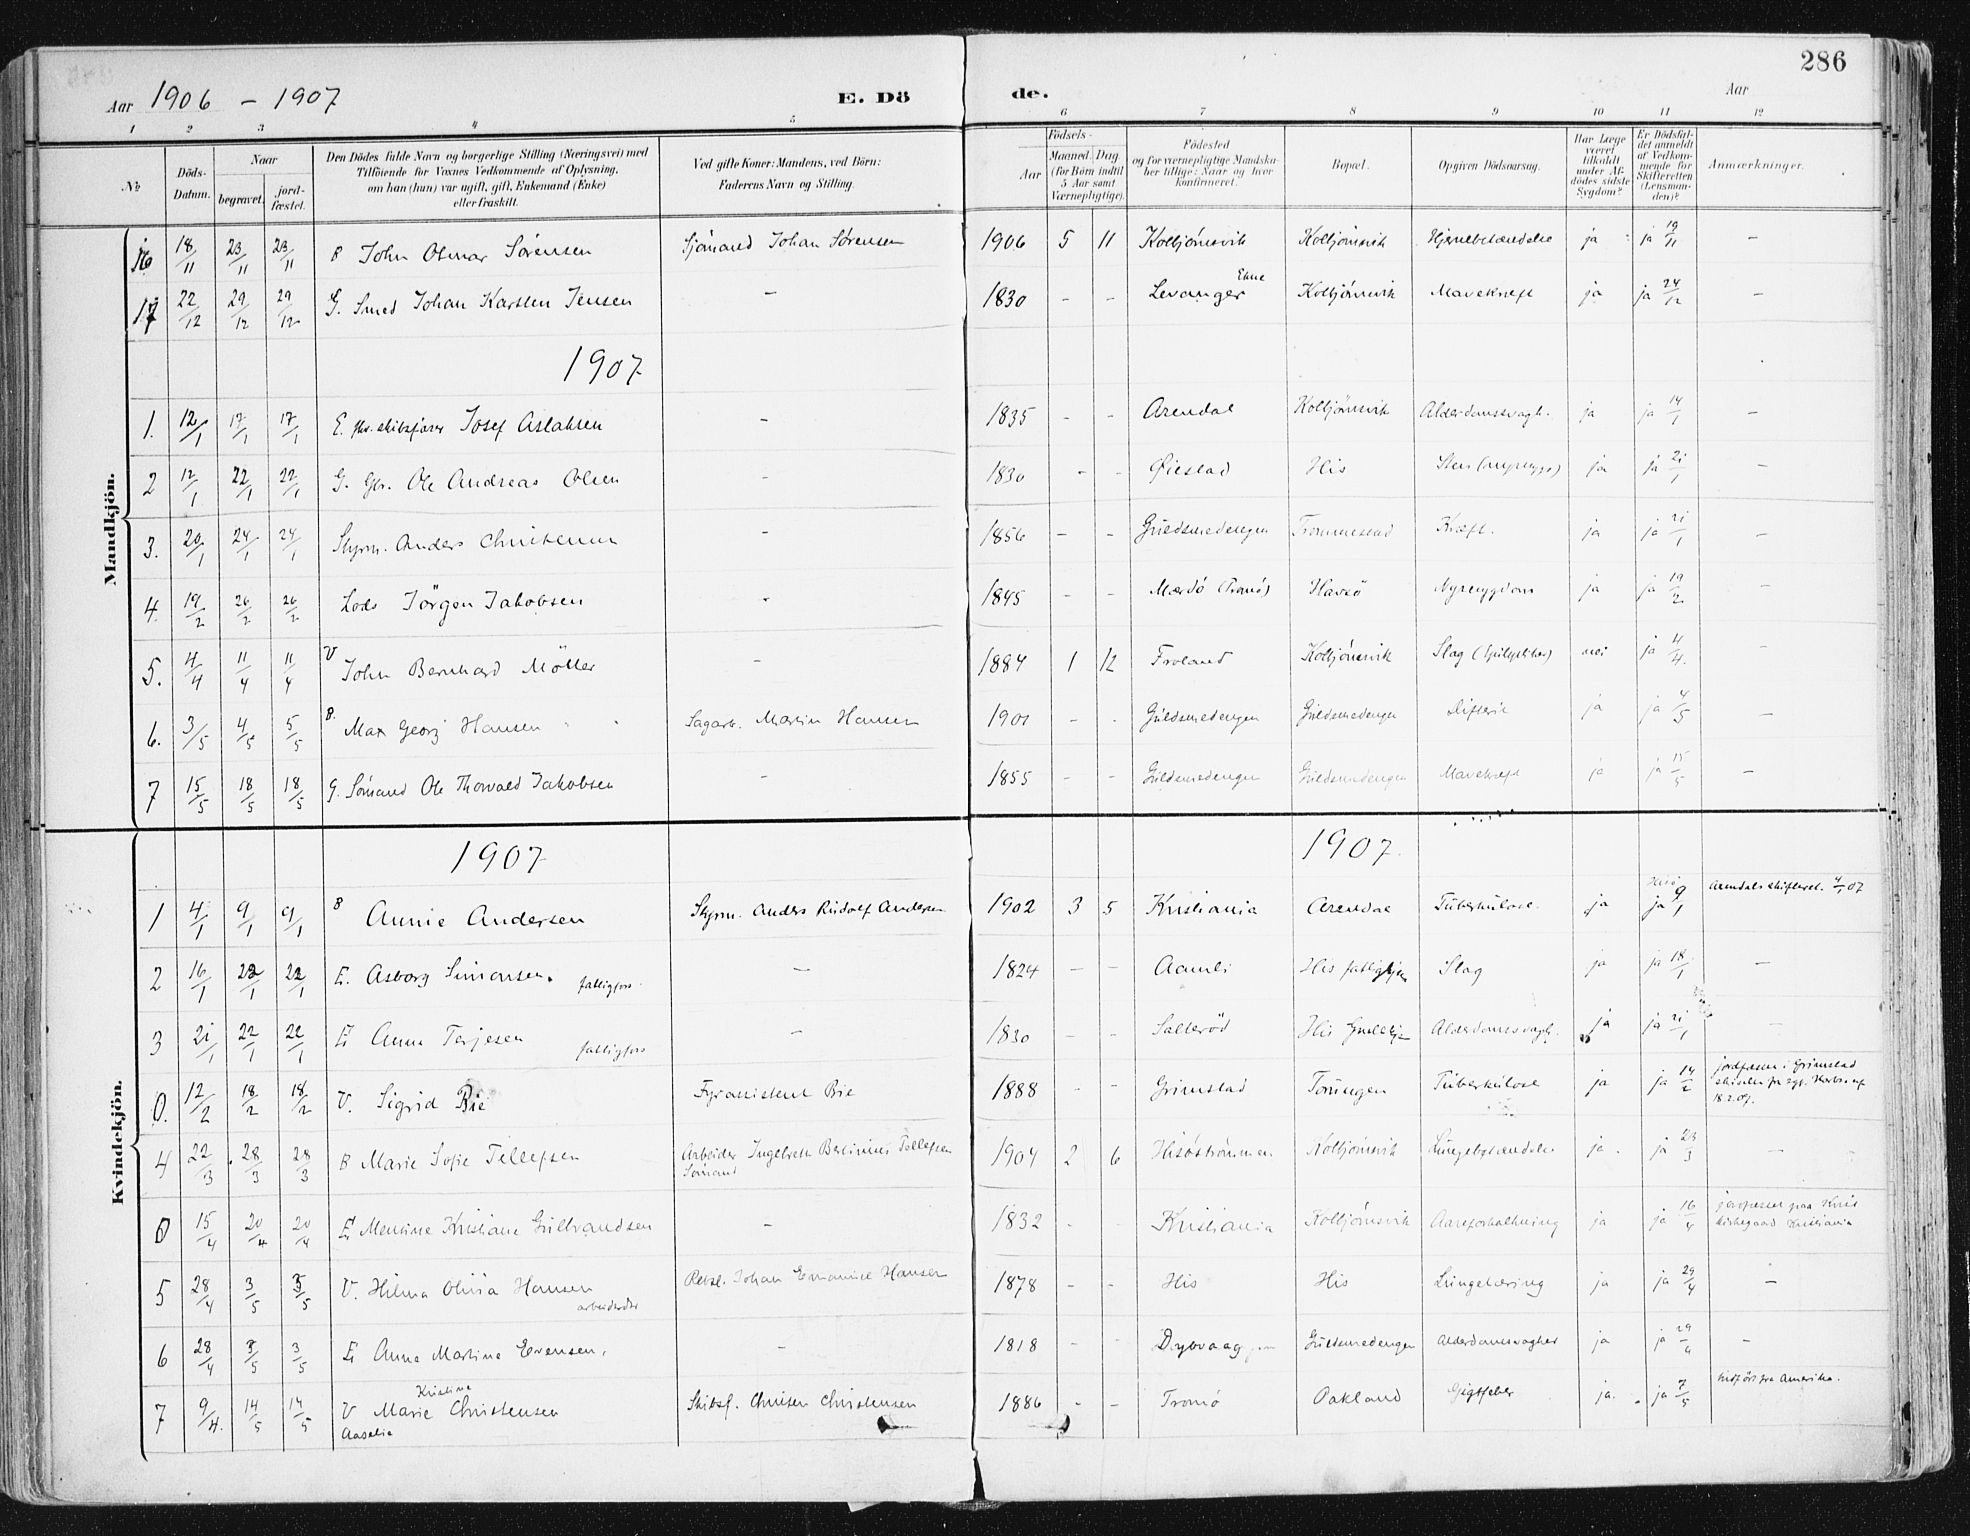 286
Aar 1906 - 1907 E. Dö de. Aar
1 2 3 4 5 6 7 8 9 10 11 12
№ Döds-Datum. Naar begravet. jord-fæstet. Den Dödes fulde Navn og borgerlige Stilling (Næringsvei) med Tilföiende for Voxnes Vedkommende af Oplysning, om han (hun) var ugift, gift, Enkemand (Enke) eller fraskilt. Ved gifte Koner: Mandens, ved Börn: Faderens Navn og Stilling. Födsels- Aar Maaned. Dag. (for Börn indtil 5 Aar samt Værnepligtige). Födested og for værnepligtige Mandska-ber tillige: Naar og hvor konfirmeret. Bopæl. Opgiven Dödsaarsag. Har Læge været tilkaldt under Af-dödes sidste Sygdom? Er Dödsfal-det anmeldt af Vedkom-mende for Skifteretten (Lensman-den)? Anmærkninger.
Mandkjön.
16 18/11 23/11 23/11 B John Otmar Sörensen Sjömand Johan Sörensen 1906 5 11 Kolbjörnsvik Kolbjörnsvik Hjernebetændelse ja ja 19/11 -
17 22/12 29/12 29/12 G. Smed Johan Karsten Jensen - 1830 - - Ekne Levanger Kolbjörnsvik Mavekræft ja ja 24/12 -
1907
1. 12/1 17/1 17/1 E. fhv. skibsförer Josef Aslaksen - 1835 - - Arendal Kolbjörnsvik Alderdomssvagh. ja ja 14/1 -
2 12/1 22/1 22/1 G. Gbr. Ole Andreas Olsen - 1830 - - Øiestad His ja ja 21/1 -
3. 20/1 24/1 24/1 Styrm. Anders Christensen - 1856 - - Guldsmedengen Trommestad Kræft. ja ja 21/1 -
4. 19/2 26/2 26/2 Lods Jörgen Jakobsen - 1845 - - Mærdö (Tromö) Havsö Nyresygdom ja ja 19/2 -
5. 4/4 11/4 11/4 V John Bernhard Möller - 1884 1 12 Froland Kolbjörnsvik Slag nei ja 4/4. -
6. 3/5 4/5 5/5 B. Max Georg Hansen Sagarb. Martin Hansen 1901 - - Guldsmedengen Guldsmedengen Difteri ja ja 4/5 -
7 15/5 18/5 18/5 G. Sömand Ole Thorvald Jakobsen - 1855 - - Guldsmedengen Guldsmedengen Mavekræft ja ja 15/5 -
Kvindekjön.
1907 1907.
1 4/1 9/1 9/1 B Annie Andersen Styrm. Anders Rudolf Andersen 1902 3 5 Kristiania Arendal Tuberkulose. ja Hisö ja 9/1 Arendals skifteret. 4/1 07
2 16/1 22/1 22/1 E. Asborg Simonsen. fattigfors. - 1824 - - Aamli His fattighjem Slag ja ja 18/1 -
3 21/1 22/1 22/1 E Anna Terjesen fattigfors - 1830 - - Salteröd His Alderdomssvagh. ja ja 21/1 -
0. 12/2 18/2 18/2 V. Sigrid Bie Fyrassistent Bie 1888 - - Grimstad Torungen Tuberkulose ja ja 14/2 jordfæstes i Grimstad
18.2.07.
4 22/3 28/3 28/3 B Marie Sofie Tellefsen Arbeider Ingebreth Bertinius Tellefsen
Sömand 1904 2 6 Hisöströmmen Kolbjörnsvik Lungebetændelse ja. ja 23/3 -
0 15/4 20/4 20/4 E Mentine Kristiane Gulbrandsen - 1832 - - Kristiania Kolbjörnsvik Aareforkalkning ja ja 16/4 jordfæstet paa
kirkegaard Kristiania
5 28/4 3/5 3/5 V. Hilma Olivia Hansen arbeiderske Rebsl. Johan Emanuel Hansen 1878 - - His His Lungetæring ja ja 29/4 -
6 28/4 3/5 3/5 E Anne Martine Evensen. - 1818 - - Dybvaag Guldsmedengen Alderdomssvaghet ja ja 29/4 -
7 9/4. 14/5 14/5 V Kristine
Marie Christensen
Aaselie Skibsf. Christen Christensen 1886 - - Tromö Oakland Gigtfeber ja. ja 7/5 hidfört fra Amerika.